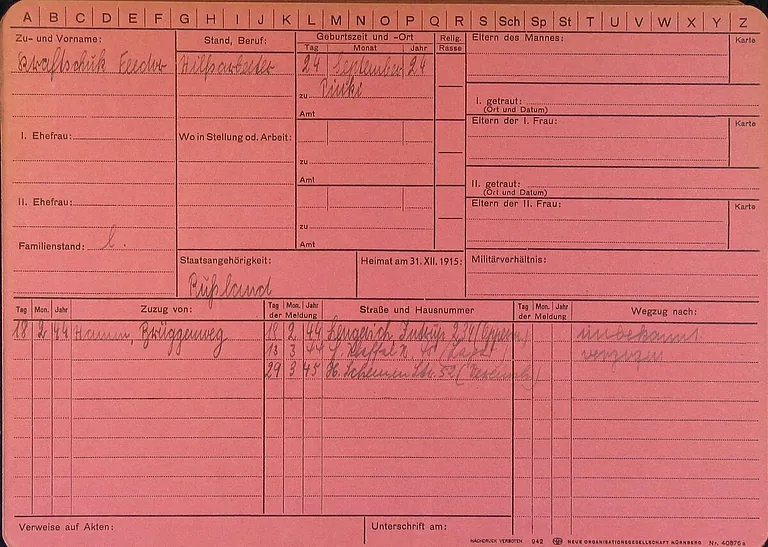 A B C D E F G H I J K L M N O P Q R S Sch Sp St T U V W X Y Z
Zu- und Vorname:
Kraftschuk Feedor
I. Ehefrau:
II. Ehefrau:
Familienstand: l.
Stand, Beruf:
Hilfsarbeiter
Wo in Stellung od. Arbeit:
Geburtszeit und -Ort
Tag Monat Jahr
24 September 24
zu Pinki
Amt
zu
Amt
zu
Amt
Relig.
Rasse
Eltern des Mannes:
Karte
I. getraut:
(Ort und Datum)
Eltern der I. Frau:
Karte
II. getraut:
(Ort und Datum)
Eltern der II. Frau:
Karte
Staatsangehörigkeit:
Rußland
Heimat am 31. XII. 1915:
Militärverhältnis:
Tag Mon. Jahr Zuzug von:
Tag Mon. Jahr
der Meldung
Straße und Hausnummer
Tag Mon. Jahr
der Meldung
Wegzug nach:
18 2 44 Hamm, Brüggenweg 18 2 44 Lengerich, 234 unbekannt
18 3 44 verzogen
29 3 45 Str. 52
Verweise auf Akten:
Unterschrift am:
NACHDRUCK VERBOTEN 942 NEUE ORGANISATIONSGESELLSCHAFT NÜRNBERG Nr. 40876 a